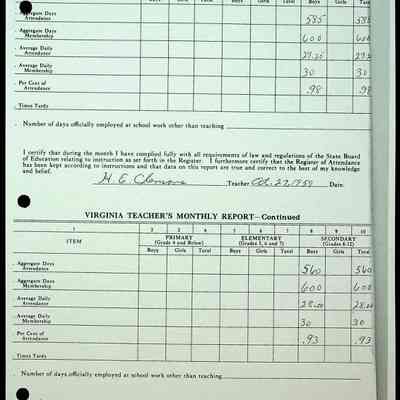 . Aggregate Days Attendance 585 585
. Aggregate Days Membership 600 600
. Average Daily Attendance 29.25
. Average Daily Membership 30 30
. Per Cent of Attendance .98 .98
. Times Tardy
. Number of days officially employed at school work other than teaching
I certify that during the month I have complied fully with all requirements of law and regulations of the State Board
of Education relating to instruction as set forth in the Register. I further certify that the Register of Attendance
has been kept according to instructions and that data on this report are true and correct to the best of my knowledge
and belief.
Teacher Date.
VIRGINIA TEACHER'S MONTHLY REPORT—Continued
1 2 3 4 5 6 7 8 9 10
ITEM PRIMARY (Grade 4 and Below) ELEMENTARY (Grades 5, 6 and 7) SECONDARY (Grades 8-12)
Boys Girls Total Boys Girls Total Boys Girls Total
. Aggregate Days Attendance 560 560
. Aggregate Days Membership 600 600
. Average Daily Attendance 28.00 28.00
. Average Daily Membership 30 30
. Per Cent of Attendance .93 .93
. Times Tardy
. Number of days officially employed at school work other than teaching